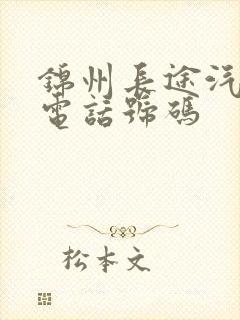 錦州長途汽
電話號碼
松本文